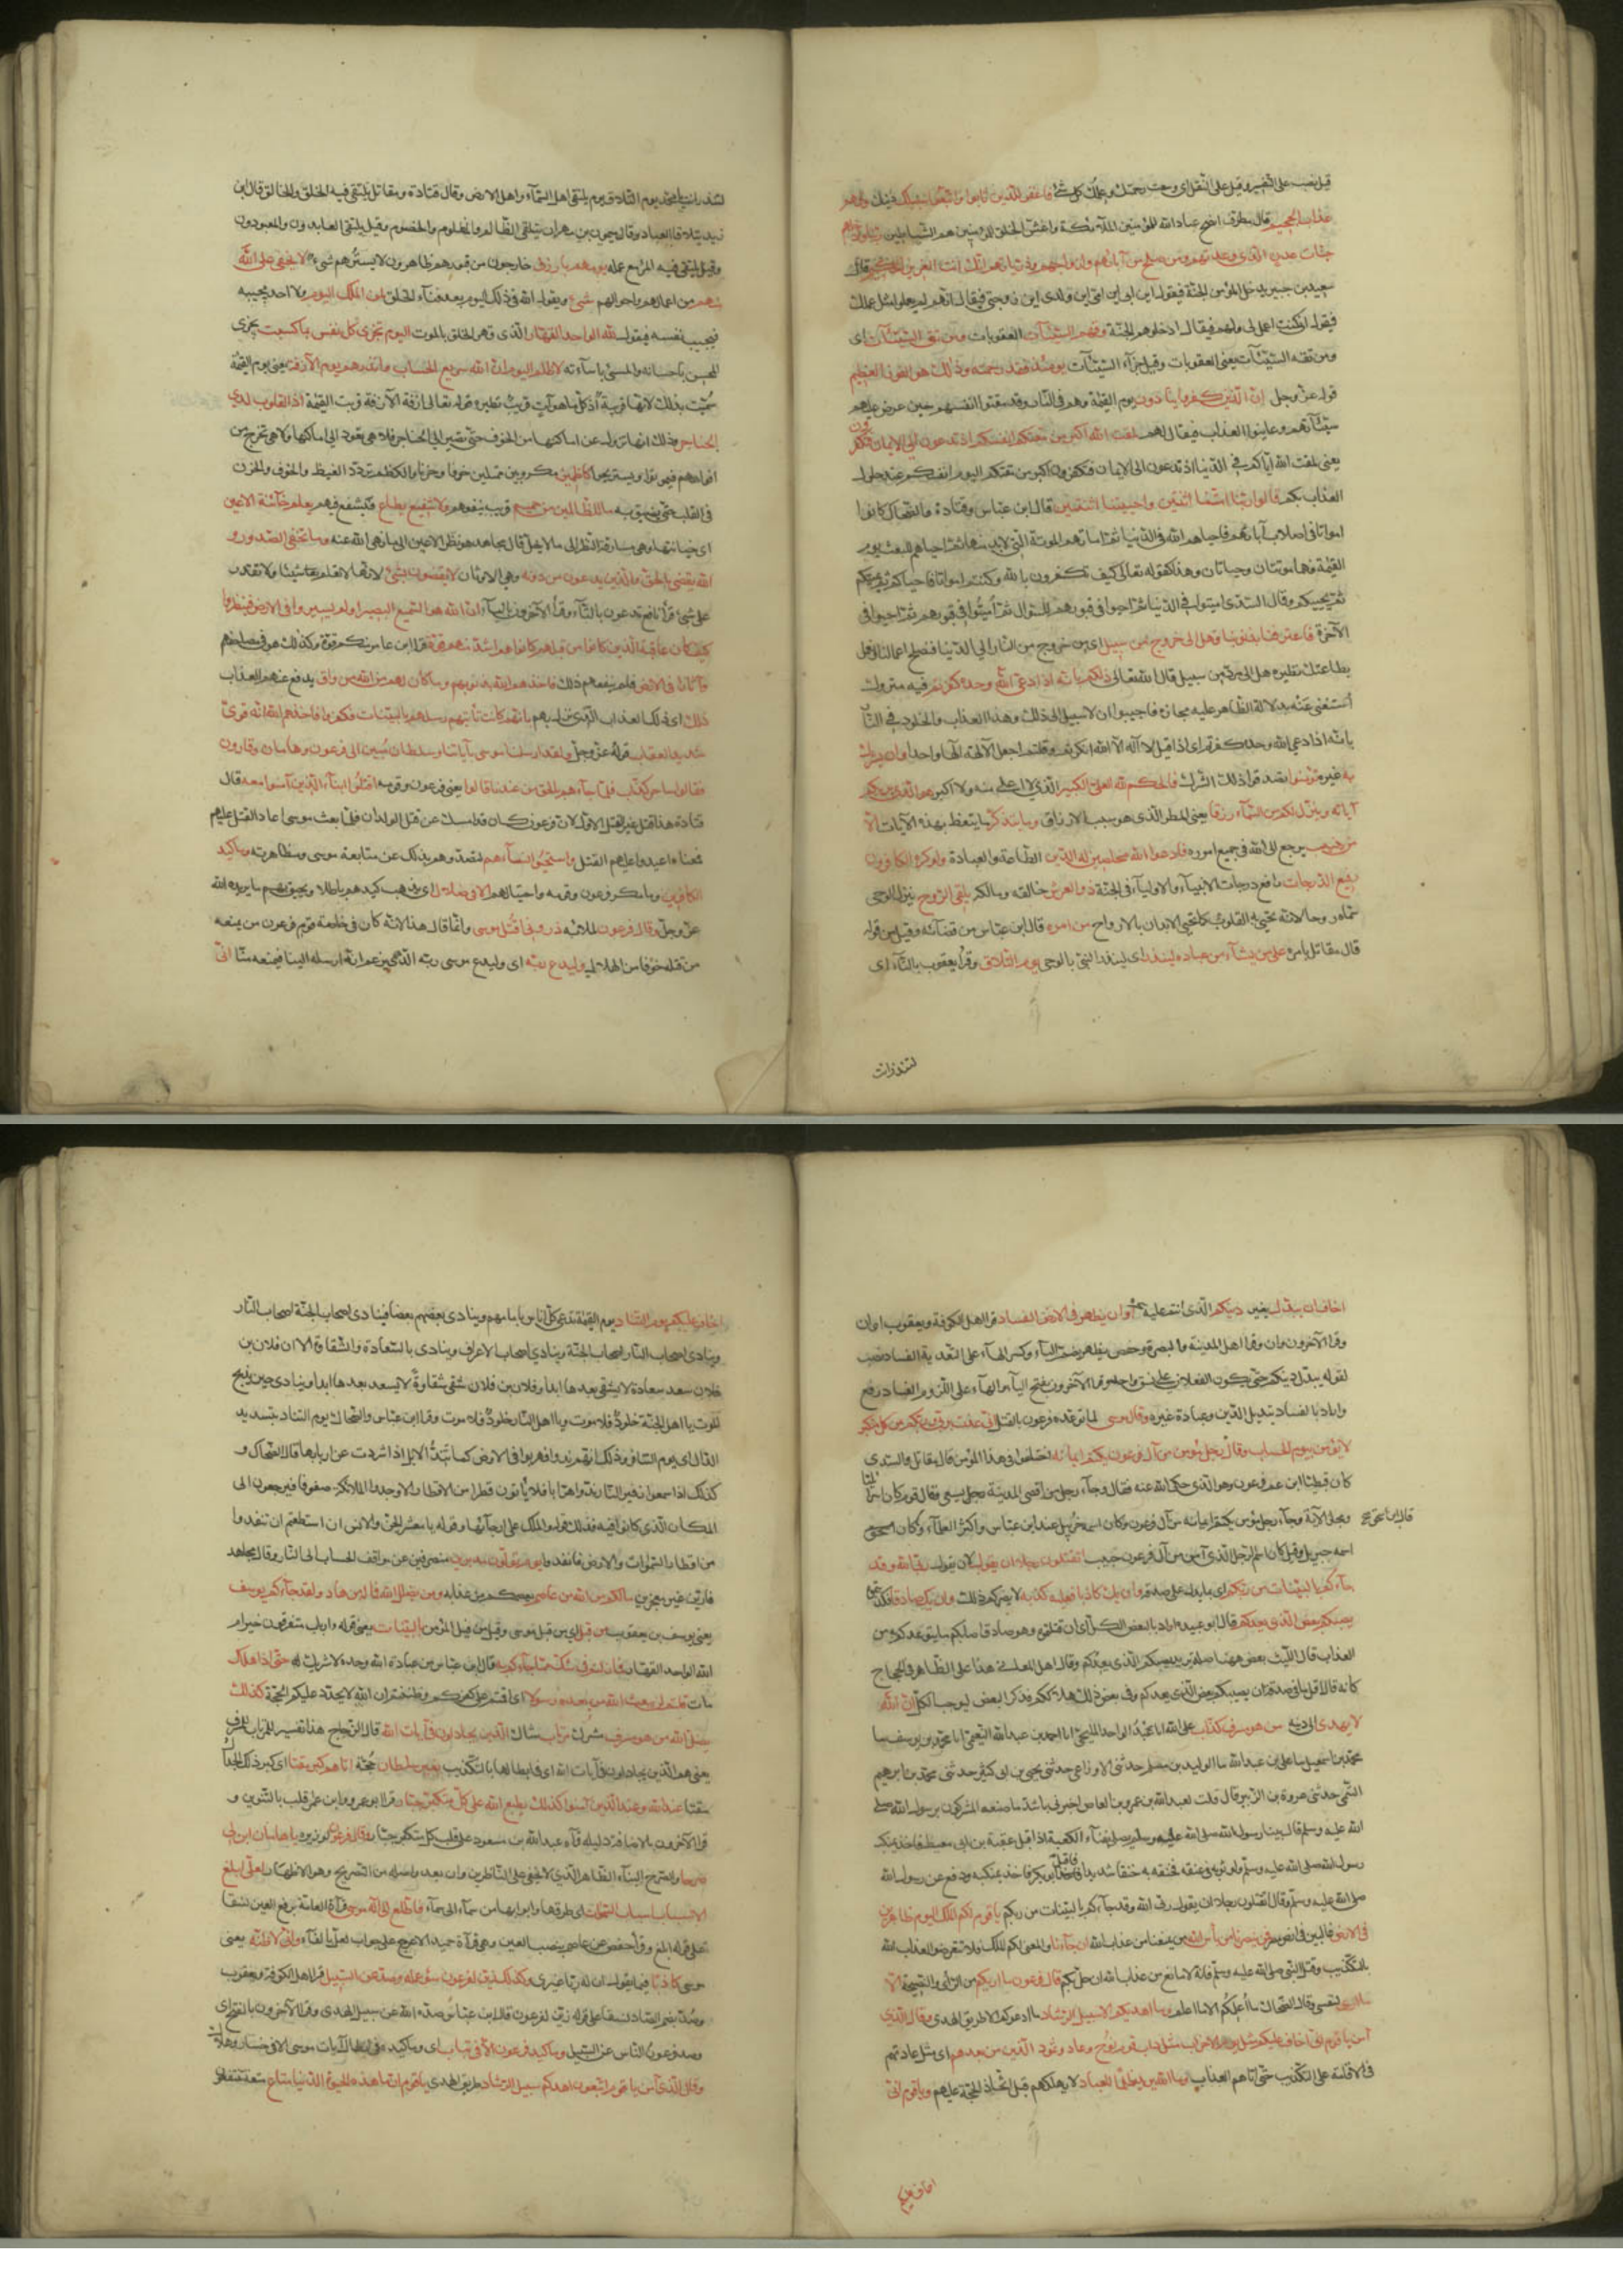 قيل نصب على التفسير وقيل على النقل اى وسعت رحمتك وعلمك كل شئ فاغفر للذين تابوا واتبعوا سبيلك دينك وقهم
عذاب الجحيم قال مطرف انصح عباد الله للمؤمنين الملائكة واغش الخلق للمؤمنين هم الشياطين ربنا وادخلهم
جنات عدن التى وعدتهم ومن صلح من آبائهم وازواجهم وذرياتهم انك انت العزيز الحكيم قال
سعيد بن جبير يدخل المؤمن الجنة فيقول اين ابى اين امى اين ولدى اين زوجتى فيقال انهم لم يعملوا مثل عملك
فيقول انى كنت اعمل لى ولهم فيقال ادخلوهم الجنة وقهم السيئات العقوبات ومن تق السيئات اى
ومن تقه السيئات يعنى العقوبات وقيل جزآء السيئات يومئذ فقد رحمته وذلك هو الفوز العظيم
قوله عز وجل ان الذين كفروا ينادون يوم القيمة وهم فى النار وقد مقتوا انفسهم حين عرض عليهم
سيئآتهم وعاينوا العذاب فيقال لهم لمقت الله اكبر من مقتكم انفسكم اذ تدعون الى الايمان فتكفرون
يعنى لمقت الله اياكم فى الدنيا اذ تدعون الى الايمان فتكفرون اكبر من مقتكم اليوم انفسكم عند حلول
العذاب بكم قالوا ربنا امتنا اثنتين واحييتنا اثنتين قال ابن عباس وقتادة والضحاك كانوا
امواتا فى اصلاب آبائهم فاحياهم الله فى الدنيا ثم اماتهم الموتة التى لابد منها ثم احياهم للبعث يوم
القيمة فهما موتتان وحياتان وهذا كقوله تعالى كيف تكفرون بالله وكنتم امواتا فاحياكم ثم يميتكم
ثم يحييكم وقال السدى اميتوا فى الدنيا ثم احيوا فى قبورهم للسوال ثم اميتوا فى قبورهم ثم احيوا فى
الآخرة فاعترفنا بذنوبنا فهل الى خروج من سبيل اى من خروج من النار الى الدنيا فنصلح اعمالنا ونعمل
بطاعتك نظيره هل الى مرد من سبيل قال الله تعالى ذلكم بانه اذا دعى الله وحده كفرتم فيه متروك
استغنى عنه بدلالة الظاهر عليه مجازه فاجيبوا ان لا سبيل الى ذلك وهذا العذاب والخلود فى النار
بانه اذا دعى الله وحده كفرتم اى اذا قيل لا اله الا الله انكرتم وقلتم اجعل الآلهة الها واحدا وان يشرك
به غيره تؤمنوا تصدقوا ذلك الشرك فالحكم لله العلى الكبير الذى لا اعلى منه ولا اكبر هو الذى يريكم
آياته وينزل لكم من السمآء رزقا يعنى المطر الذى هو سبب الارزاق وما يتذكر ما يتعظ بهذه الآيات الا
من ينيب يرجع الى الله فى جميع اموره فادعوا الله مخلصين له الدين الطاعة والعبادة ولو كره الكافرون
رفيع الدرجات رافع درجات الانبيآء والاوليآء فى الجنة ذو العرش خالقه ومالكه يلقى الروح ينزل الوحى
سماه روحا لانه تحيى به القلوب كما تحيى الابدان بالارواح من امره قال ابن عباس من قضآئه وقيل من قوله
قال مقاتل بامره على من يشآء من عباده لينذر اى لينذر النبى بالوحى يوم التلاق وقرأ يعقوب بالتآء اى
لتنذر انت
لتنذر انت يا محمد يوم التلاق يوم يلتقى اهل السمآء واهل الارض وقال قتادة ومقاتل يلتقى فيه الخلق والخالق قال ابن
زيد يتلاقى العباد وقال ميمون بن مهران يتلقى الظالم والمظلوم والخصوم وقيل يلتقى العابدون والمعبودون
وقيل يلتقى فيه المرء مع عمله يوم هم بارزون خارجون من قبورهم ظاهرون لا يسترهم شىء لا يخفى على الله
منهم من اعمالهم واحوالهم شئ ويقول الله فى ذلك اليوم بعد فنآء الخلق لمن الملك اليوم ولا احد يجيبه
فيجيب نفسه فيقول لله الواحد القهار الذى قهر الخلق بالموت اليوم تجزى كل نفس بما كسبت يجزى
المحسن باحسانه والمسئ باسآءته لا ظلم اليوم ان الله سريع الحساب وانذرهم يوم الآزفة يعنى يوم القيمة
سميت بذلك لانها قريبة اذ كل ما هو آت قريب نظيره قوله تعالى ازفة الآزفة قربت القيمة اذ القلوب لدى
الحناجر وذلك انها تزول عن اماكنها من الخوف حتى تصير الى الحناجر فلا هى تعود الى اماكنها ولا هى تخرج من
افواههم فيموتوا ويستريحوا كاظمين مكروبين ممتلين خوفا وحزنا والكظم تردد الغيظ والخوف والحزن
فى القلب حتى يضيق به ما للظالمين من حميم قريب ينفعهم ولا شفيع يطاع فيشفع فيهم يعلم خائنة الاعين
اى خيانتها وهى مسارقة النظر الى ما لا يحل قال مجاهد هو نظر الاعين الى ما نهى الله عنه وما تخفى الصدور و
الله يقضى بالحق والذين يدعون من دونه وهى الاوثان لا يقضون بشئ لانها لا تعلم شيئا ولا تقدر
على شئ قرأ نافع تدعون بالتآء وقرأ الآخرون باليآء ان الله هو السميع البصير اولم يسيروا فى الارض فينظروا
كيف كان عاقبة الذين كانوا من قبلهم كانوا هم اشد منهم قوة قرأ ابن عامر منكم قوة وكذلك هو فى مصاحفهم
وآثارا فى الارض فلم ينفعهم ذلك فاخذهم الله بذنوبهم وما كان لهم من الله من واق يدفع عنهم العذاب
ذلك اى ذلك العذاب الذى نزل بهم بانهم كانت تاتيهم رسلهم بالبينات فكفروا فاخذهم الله انه قوى
شديد العقاب قوله عز وجل ولقد ارسلنا موسى بآياتنا وسلطان مبين الى فرعون وهامان وقارون
فقالوا ساحر كذاب فلما جآءهم بالحق من عندنا قالوا يعنى فرعون وقومه اقتلوا ابنآء الذين آمنوا معه قال
قتادة هذا قتل غير القتل الاول لان فرعون كان قد امسك عن قتل الولدان فلما بعث موسى اعاد القتل عليهم
فمعناه اعيدوا عليهم القتل واستحيوا نسآءهم ليصدوهم بذلك عن متابعة موسى ومظاهرته وما كيد
الكافرين وما مكر فرعون وقومه واحتيالهم الا فى ضلال اى يذهب كيدهم باطلا ويحيق بهم ما يريده الله
عز وجل وقال فرعون لملائه ذرونى اقتل موسى وانما قال هذا لانه كان فى خاصة قوم فرعون من يمنعه
من قتله خوفا من الهلاك وليدع ربه اى وليدع موسى ربه الذى يزعم انه ارسله الينا فيمنعه منا انى
اخاف ان يبدل يغير دينكم الذى انتم عليه او ان يظهر فى الارض الفساد قرأ اهل الكوفة ويعقوب او ان
وقرأ الآخرون وان وقرأ اهل المدينة والبصرة وحفص يظهر بضم اليآء وكسر الهآء على التعدية الفساد نصب
لقوله يبدل دينكم حتى يكون الفعلان على نسق واحد وقرأ الآخرون بفتح اليآء والهآء على اللزوم الفساد رفع
واراد بالفساد تبديل الدين وعبادة غيره وقال موسى لما توعده فرعون بالقتل انى عذت بربى وربكم من كل متكبر
لا يؤمن بيوم الحساب وقال رجل مؤمن من آل فرعون يكتم ايمانه اختلفوا فى هذا المؤمن قال مقاتل والسدى
كان قبطيا ابن عم فرعون وهو الذى حكى الله عنه فقال وجآء رجل من اقصى المدينة رجل يسعى وقال قوم كان اسرائيليا
ومجاز الآية وجآء رجل مؤمن يكتم ايمانه من آل فرعون وكان اسمه حزبيل عند ابن عباس واكثر العلمآء وكان
قال ابن اسحق
اسمه جبريل وقيل كان اسم الرجل الذى آمن من آل فرعون حبيب اتقتلون رجلا ان يقول لان يقول ربى الله وقد
جآءكم بالبينات من ربكم اى بما يدل على صدقه وان يك كاذبا فعليه كذبه لا يضركم ذلك وان يك صادقا فكذبتموه
يصبكم بعض الذى يعدكم قال ابو عبيد اراد بالبعض الكل اى ان قتلتموه وهو صادق اصابكم ما يتوعدكم به من
العذاب قال الليث بعض ههنا صلة يريد يصبكم الذى يعدكم وقال اهل المعانى هذا على الظاهر فى الحجاج
كانه قال اقل ما فى صدقه ان يصيبكم بعض الذى يعدكم وفى بعض ذلك هلاككم فذكر البعض ليوجب الكل ان الله
لا يهدى الى دينه من هو مسرف كذاب على الله انا عبد الواحد المليحى انا احمد بن عبد الله النعيمى انا محمد بن يوسف سا
محمد بن اسمعيل سا على بن عبد الله سا الوليد بن مسلم حدثنى الاوزاعى حدثنى يحيى بن ابى كثير حدثنى محمد بن ابرهيم
التيمى حدثنى عروة بن الزبير قال قلت لعبد الله بن عمرو بن العاص اخبرنى باشد ما صنعه المشركون برسول الله صلى
الله عليه وسلم قال بينا رسول الله صلى الله عليه وسلم يصلى بفنآء الكعبة اذ اقبل عقبة بن ابى معيط فاخذ بمنكب
رسول الله صلى الله عليه وسلم ولوى ثوبه فى عنقه فخنقه به خنقا شديدا فاقبل ابو بكر فاخذ بمنكبه ودفع عن رسول الله
صلى الله عليه وسلم وقال اتقتلون رجلا ان يقول ربى الله وقد جآءكم بالبينات من ربكم يا قوم لكم الملك اليوم ظاهرين
فى الارض غالبين فى ارض مصر فمن ينصرنا من بأس الله من يمنعنا من عذاب الله ان جآءنا والمعنى لكم الملك فلا تتعرضوا لعذاب الله
بالتكذيب وقتل النبى صلى الله عليه وسلم فانه لا مانع من عذاب الله ان حل بكم قال فرعون ما اريكم من الرأى والنصيحة الا
ما ارى لنفسى وقال الضحاك ما اعلمكم الا ما اعلم وما اهديكم الا سبيل الرشاد ما ادعوكم الا طريق الهدى وقال الذى
آمن يا قوم انى اخاف عليكم مثل يوم الاحزاب مثل داب قوم نوح وعاد وثمود الذين من بعدهم اى مثل عادتهم
فى الاقامة على التكذيب حتى اتاهم العذاب وما الله يريد ظلما للعباد لا يهلكهم قبل اتخاذ الحجة عليهم ويا قوم انى
اخاف عليكم
اخاف عليكم يوم التناد يوم القيمة يدعى كل اناس بامامهم وينادى بعضهم بعضا فينادى اصحاب الجنة اصحاب النار
وينادى اصحاب النار اصحاب الجنة وينادى اصحاب الاعراف وينادى بالسعادة والشقاوة الا ان فلان بن
فلان سعد سعادة لا يشقى بعدها ابدا وفلان بن فلان شقى شقاوة لا يسعد بعدها ابدا وينادى حين يذبح
الموت يا اهل الجنة خلود فلا موت ويا اهل النار خلود فلا موت وقرأ ابن عباس والضحاك يوم التناد بتشديد
الدال اى يوم التنافر وذلك انهم ندوا فهربوا فى الارض كما تند الابل اذا شردت عن اربابها قال الضحاك و
كذلك اذا سمعوا زفير النار ندوا هربا فلا يأتون قطرا من الاقطار الا وجدوا الملائكة صفوفا فيرجعون الى
المكان الذى كانوا فيه فذلك قوله والملك على ارجآئها وقوله يا معشر الجن والانس ان استطعتم ان تنفذوا
من اقطار السموات والارض فانفذوا يوم تولون مدبرين منصرفين عن مواقف الحساب الى النار وقال مجاهد
فارين غير معجزين ما لكم من الله من عاصم يعصمكم من عذابه ومن يضلل الله فما له من هاد ولقد جآءكم يوسف
يعنى يوسف بن يعقوب من قبل اى من قبل موسى وقيل من قبل المؤمن بالبينات يعنى قوله ءارباب متفرقون خير ام
الله الواحد القهار فما زلتم فى شك مما جآءكم به قال ابن عباس من عبادة الله وحده لا شريك له حتى اذا هلك
مات قلتم لن يبعث الله من بعده رسولا اى اقمتم على كفركم وظننتم ان الله لا يجدد عليكم الحجة كذلك
يضل الله من هو مسرف مشرك مرتاب شاك الذين يجادلون فى آيات الله قال الزجاج هذا تفسير للمرتاب المسرف
يعنى هم الذين يجادلون فى آيات الله اى فى ابطالها بالتكذيب بغير سلطان حجة اتاهم كبر مقتا اى كبر ذلك الجدال
مقتا عند الله وعند الذين آمنوا كذلك يطبع الله على كل متكبر جبار قرأ ابو عمرو وابن عامر قلب بالتنوين و
قرأ الآخرون بالاضافة دليله قرآءة عبد الله بن مسعود على قلب كل متكبر جبار وقال فرعون لوزيره يا هامان ابن لى
صرحا والصرح البنآء الظاهر الذى لا يخفى على الناظرين وان بعد واصله من التصريح وهو الاظهار لعلى ابلغ
الاسباب اسباب السموات اى طرقها وابوابها من سمآء الى سمآء فاطلع الى اله موسى قرآءة العامة برفع العين نسقا
على قوله ابلغ وقرأ حفص عن عاصم بنصب العين وهى قرآءة حميد الاعرج على جواب لعل بالفآء وانى لاظنه يعنى
موسى كاذبا فيما يقول ان له ربا غيرى وكذلك زين لفرعون سوء عمله وصد عن السبيل قرأ اهل الكوفة ويعقوب
وصد بضم الصاد نسقا على قوله زين لفرعون قال ابن عباس صده الله عن سبيل الهدى وقرأ الآخرون بالفتح اى
وصد فرعون الناس عن السبيل وما كيد فرعون الا فى تباب اى وما كيده فى ابطال آيات موسى الا فى خسار وهلاك
وقال الذى آمن يا قوم اتبعون اهدكم سبيل الرشاد طريق الهدى يا قوم انما هذه الحيوة الدنيا متاع متعة تنتفعون